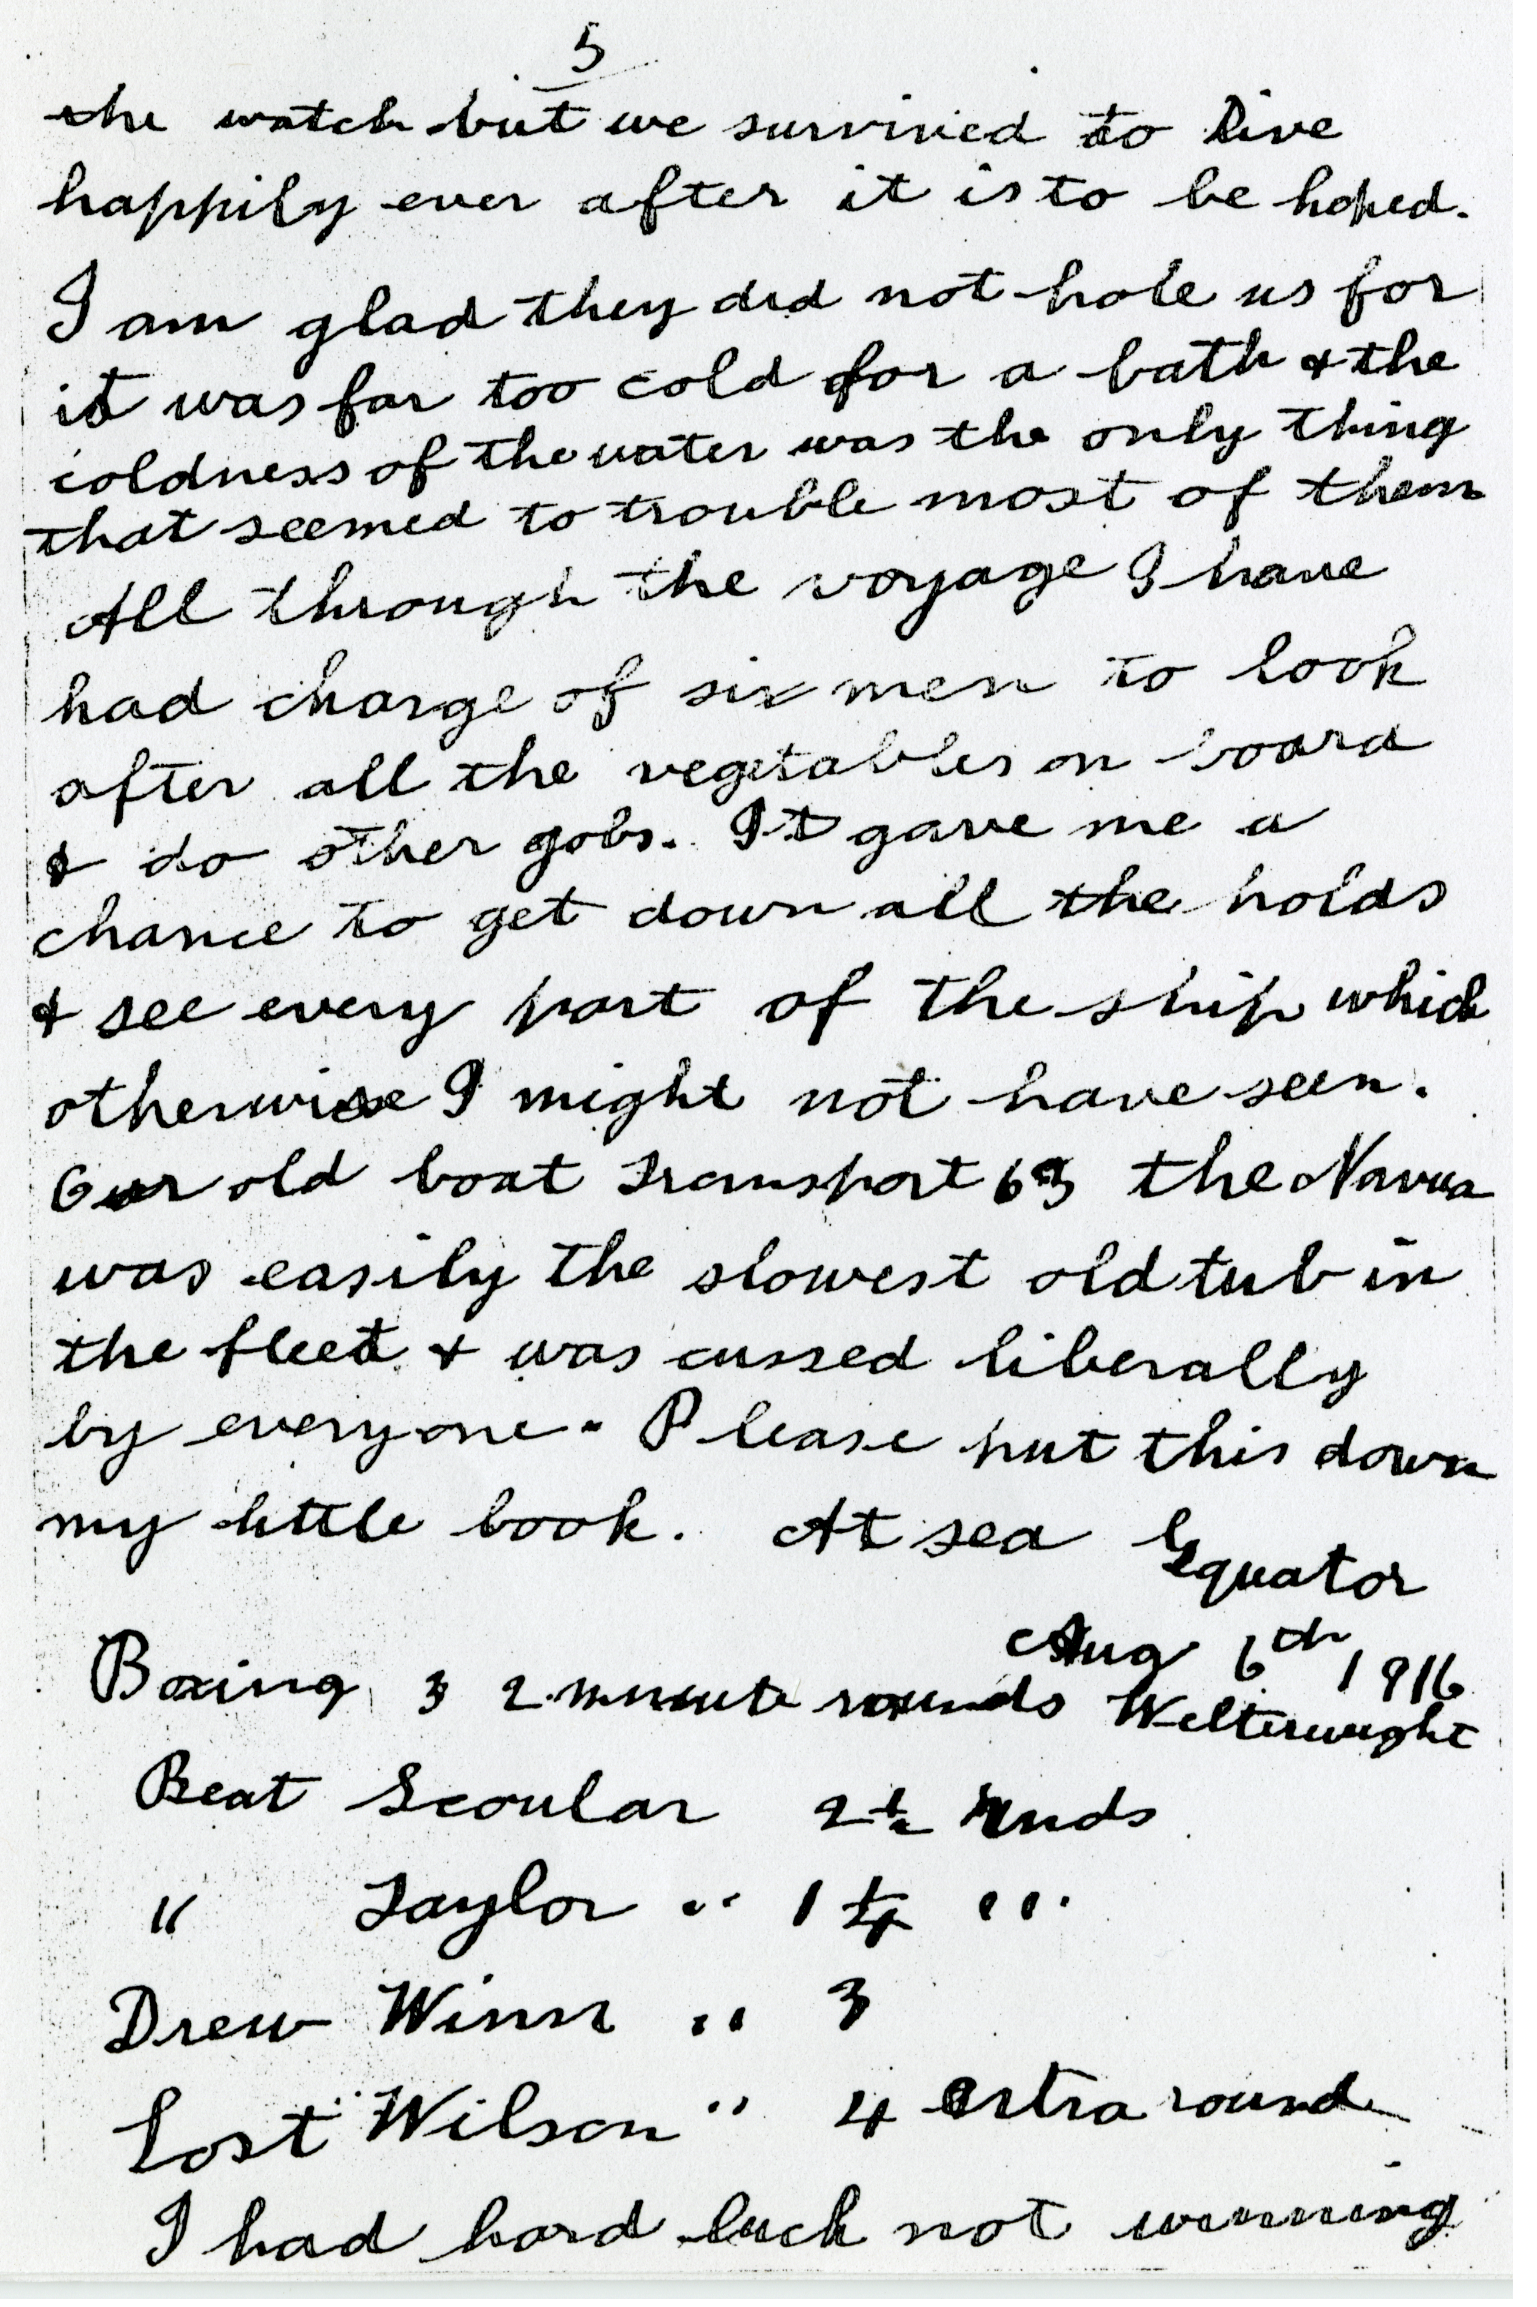 5
the watch but we survived to live
happily ever after it is to be hoped.
I am glad they did not hole us for
it was far too cold for a bath & the
coldness of the water was the only thing
that seemed to trouble most of them
All through the voyage I have
had charge of six men to look
after all the vegetables on board
& do other gobs. It gave me a
chance to get down all the holds
& see every part of the ship which
otherwise I might not have seen.
Our old boat Transport 63 the Navua
was easily the slowest old tub in
the fleet & was cussed liberally
by everyone. Please put this down
my little book. At sea Equator
Aug 6th 1916
Boxing 3 2 minute rounds Welterweight
Beat Scoular 2½ rnds
" Taylor " 1¼ "
Drew Winn " 3
Lost Wilson " 4 extra round
I had hard luck not winning